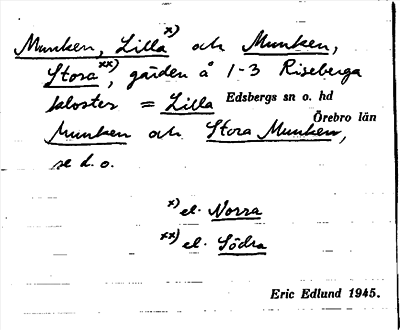 Munken, Lilla x) och Munken,
Stora xx), gården å 1-3 Riseberga
kloster = Lilla Edsbergs sn o. hd
Örebro län
Munken och Stora Munken,
se d. o.
x) el. Norra
xx) el. Södra
Eric Edlund 1945.